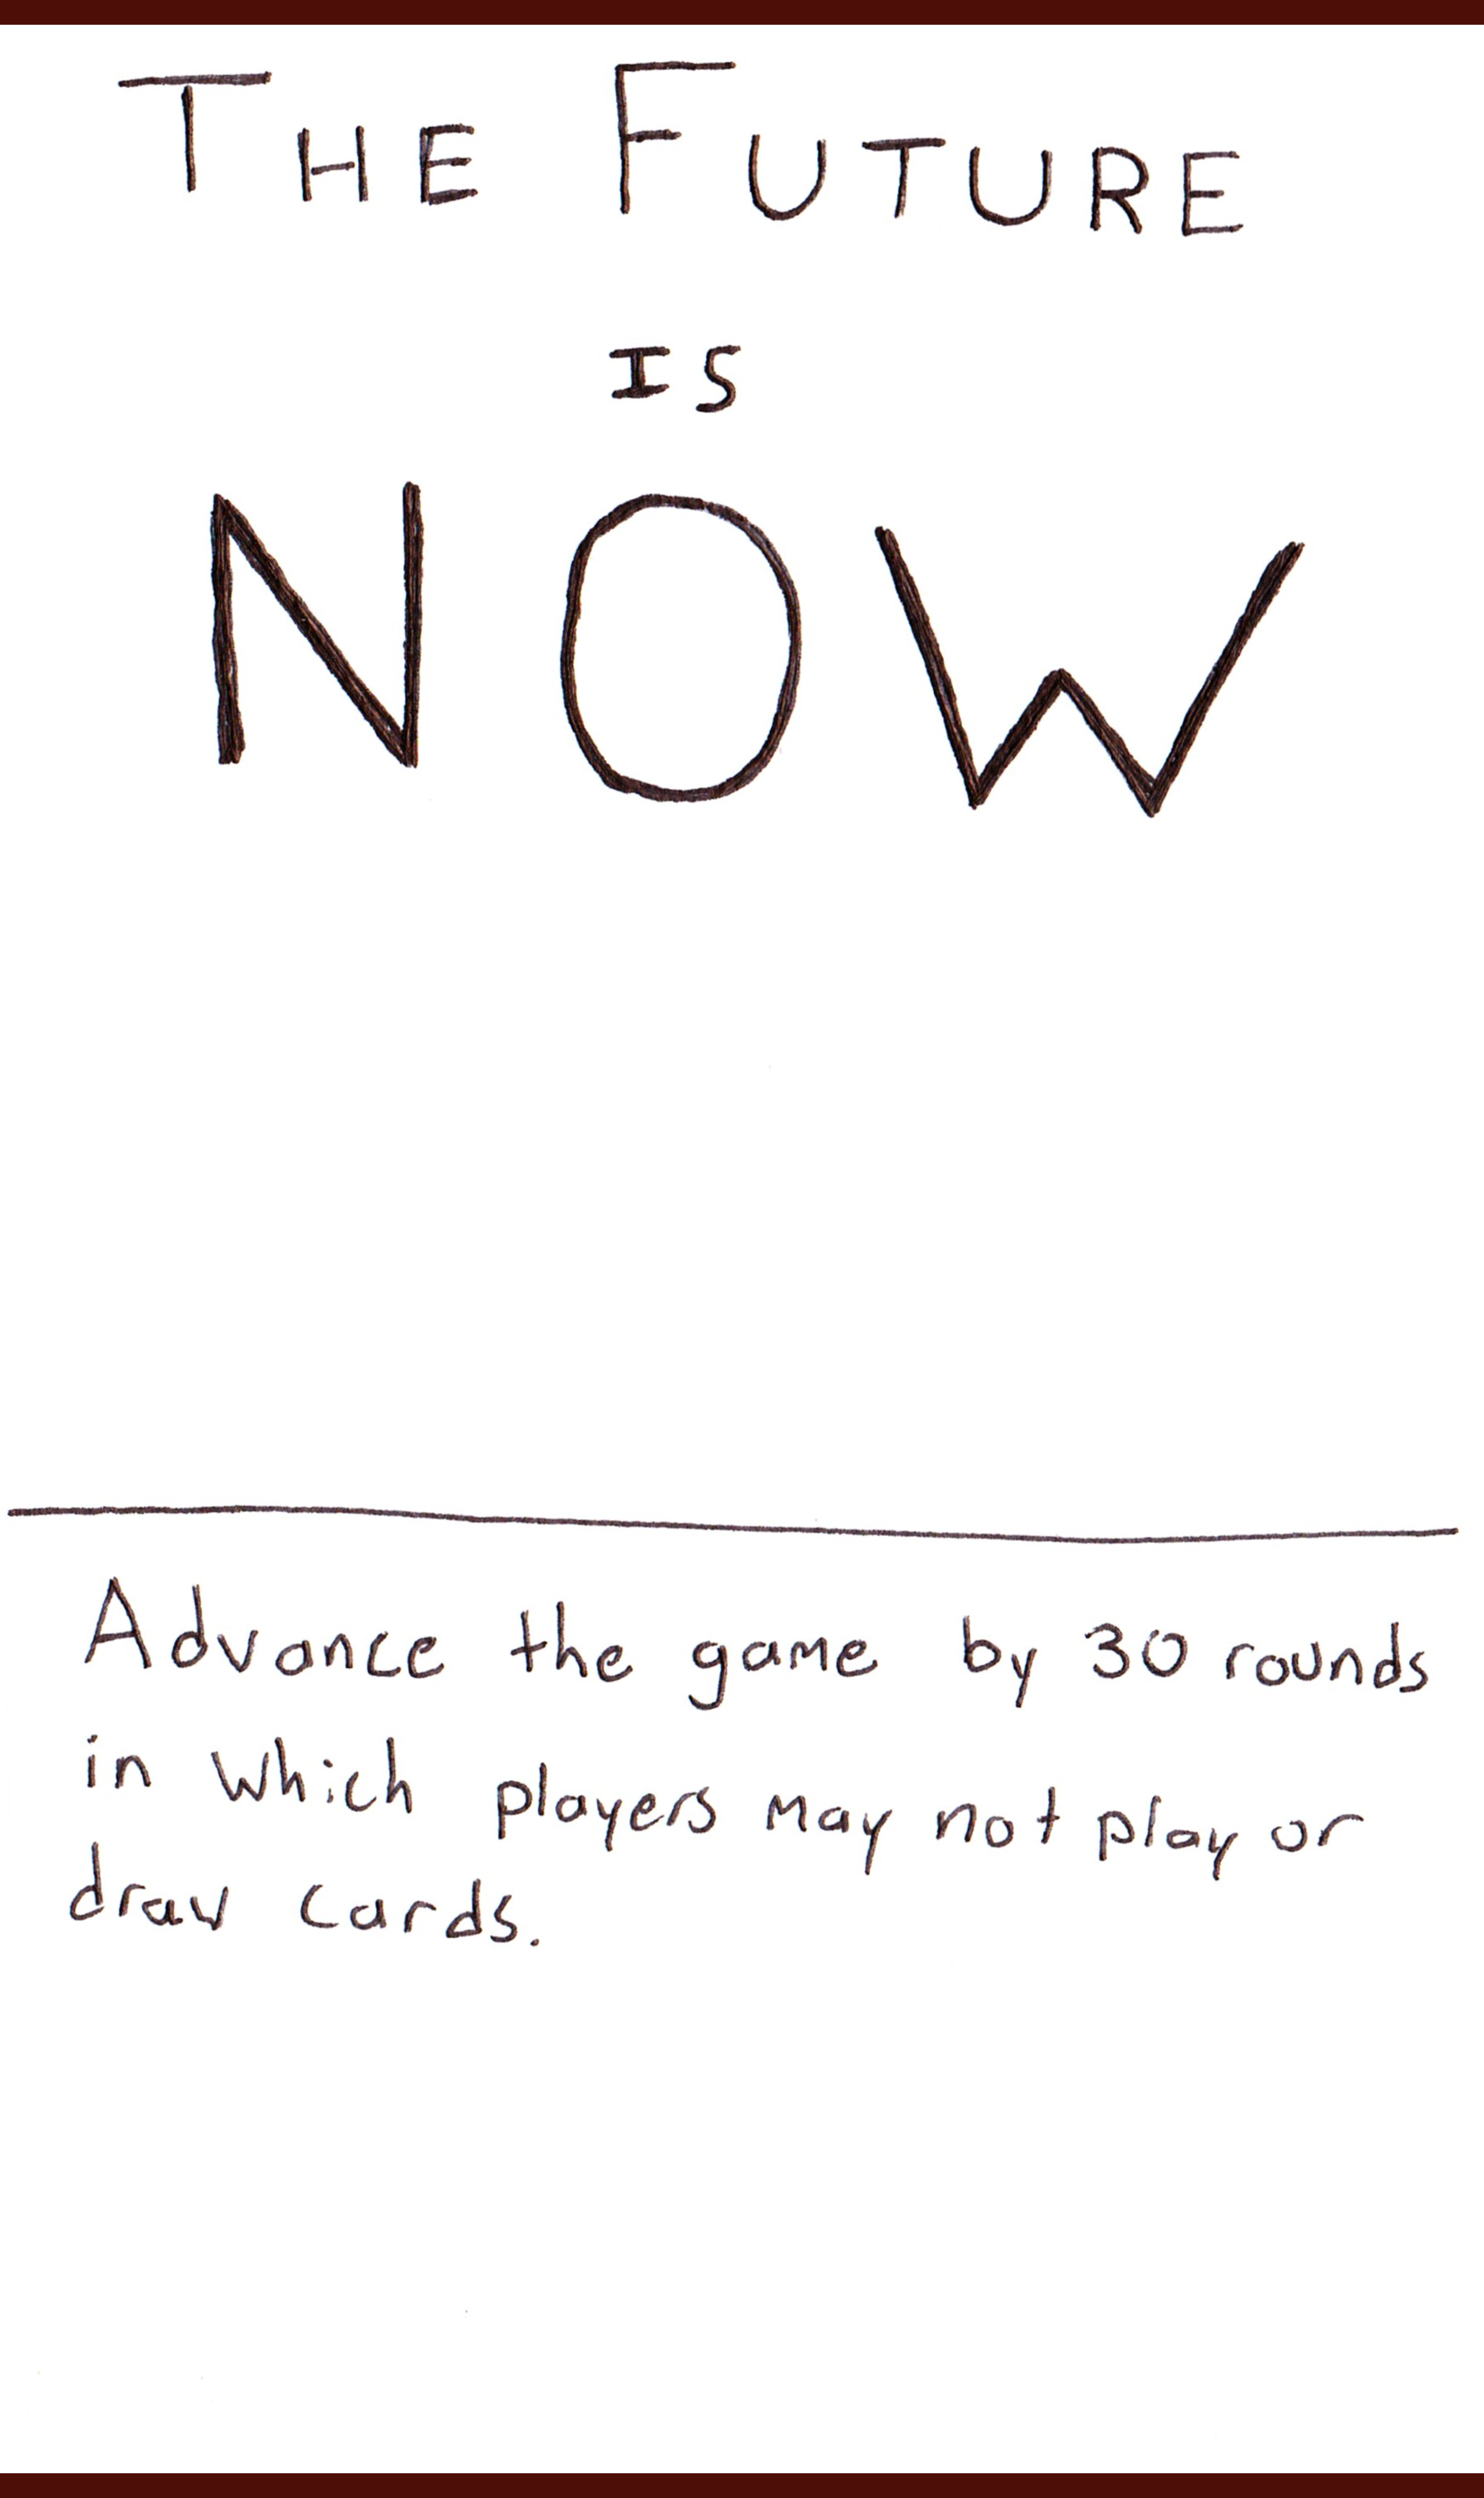 THE FUTURE
IS
NOW
Advance the game by 30 rounds
in which players may not play or
draw cards.